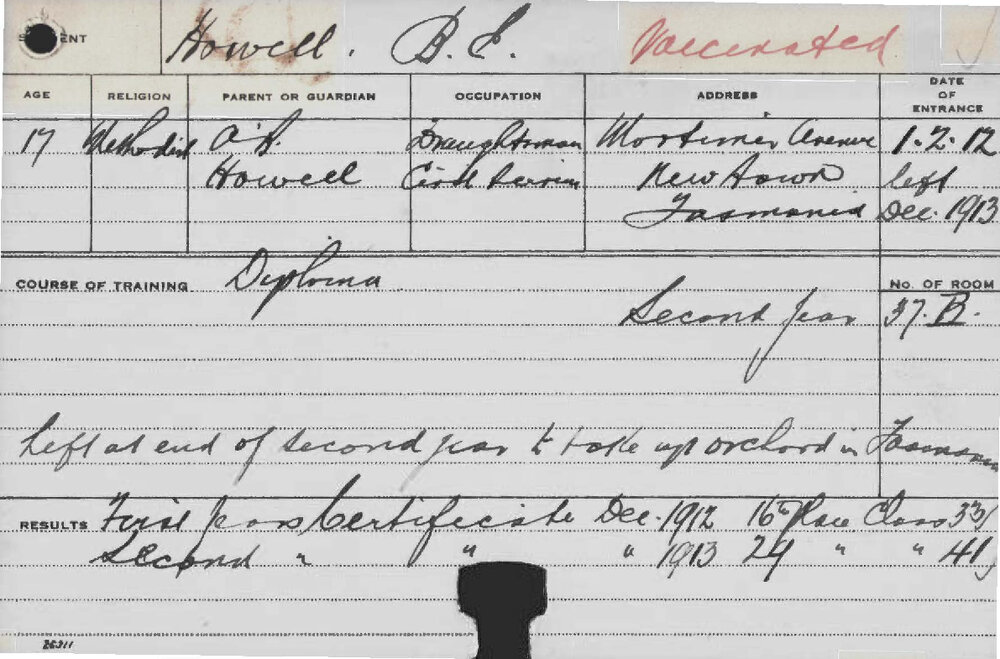 STUDENT Howell. B. L. Vaccinated
AGE RELIGION PARENT OR GUARDIAN OCCUPATION ADDRESS DATE OF ENTRANCE
17 Methodist A. B. Draughtsman Mortimer Avenue 1.2.12
Howell Civil Service New Town left
Tasmania Dec. 1913
COURSE OF TRAINING Diploma No. OF ROOM
Second year 37.B.
Left at end of second year to take up orchard in Tasmania
RESULTS First years Certificate Dec. 1912 16th Place Class 33
Second " " " 1913 29 " " 41
26311